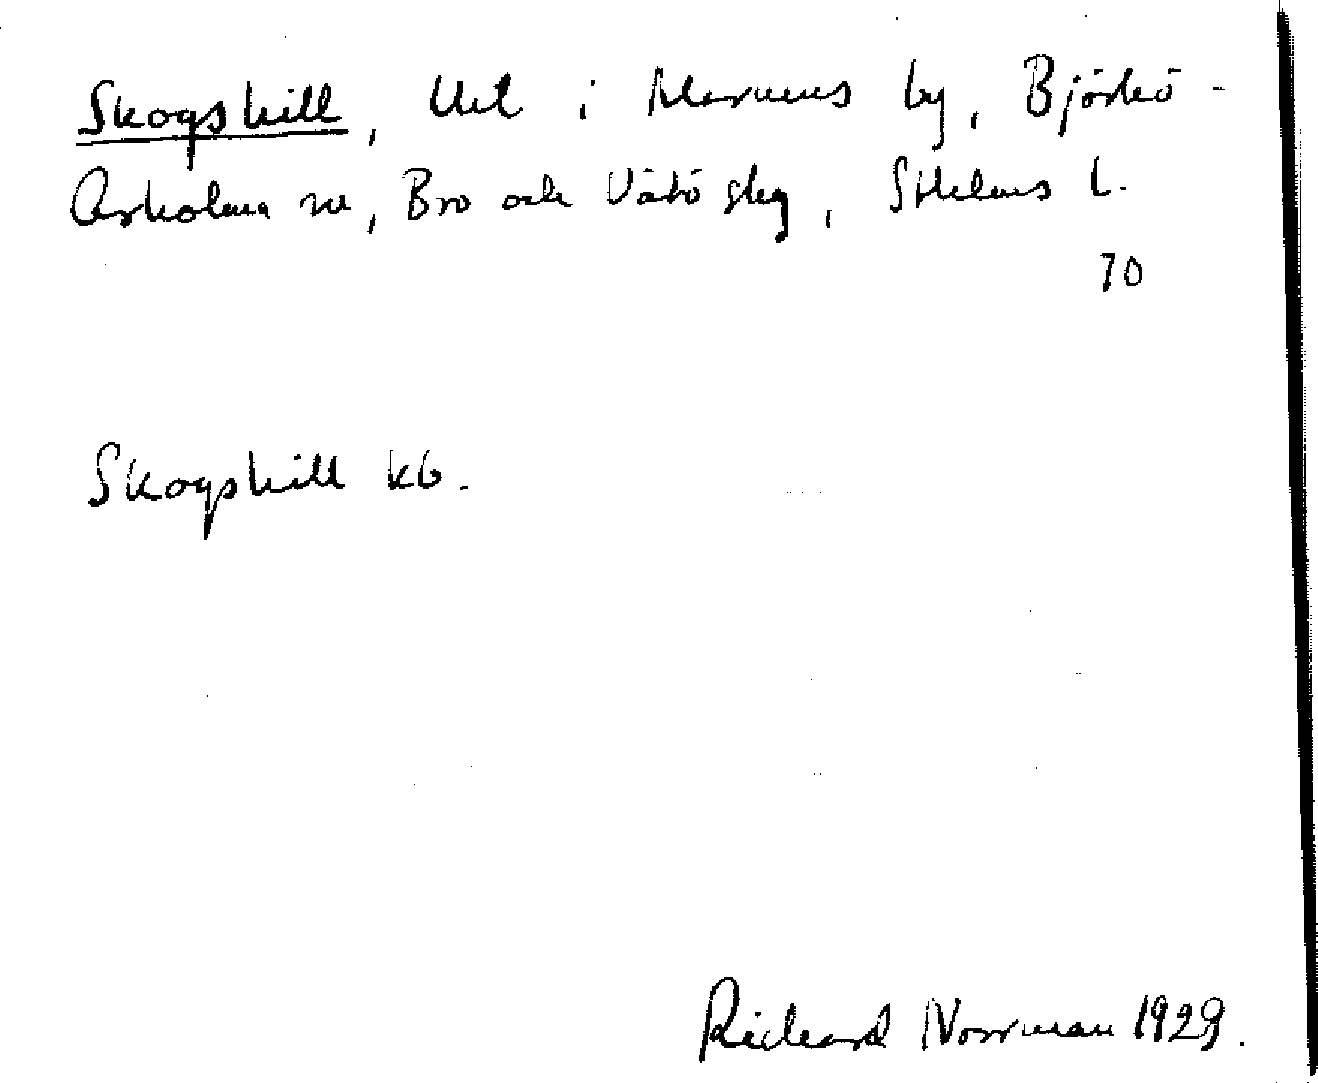 Skogshill, i Marums by, Björkö-
Arholma sn, Bro och Vätö , Sthlms l.
70
Skogshill kb.
Richard Norrman 1929.